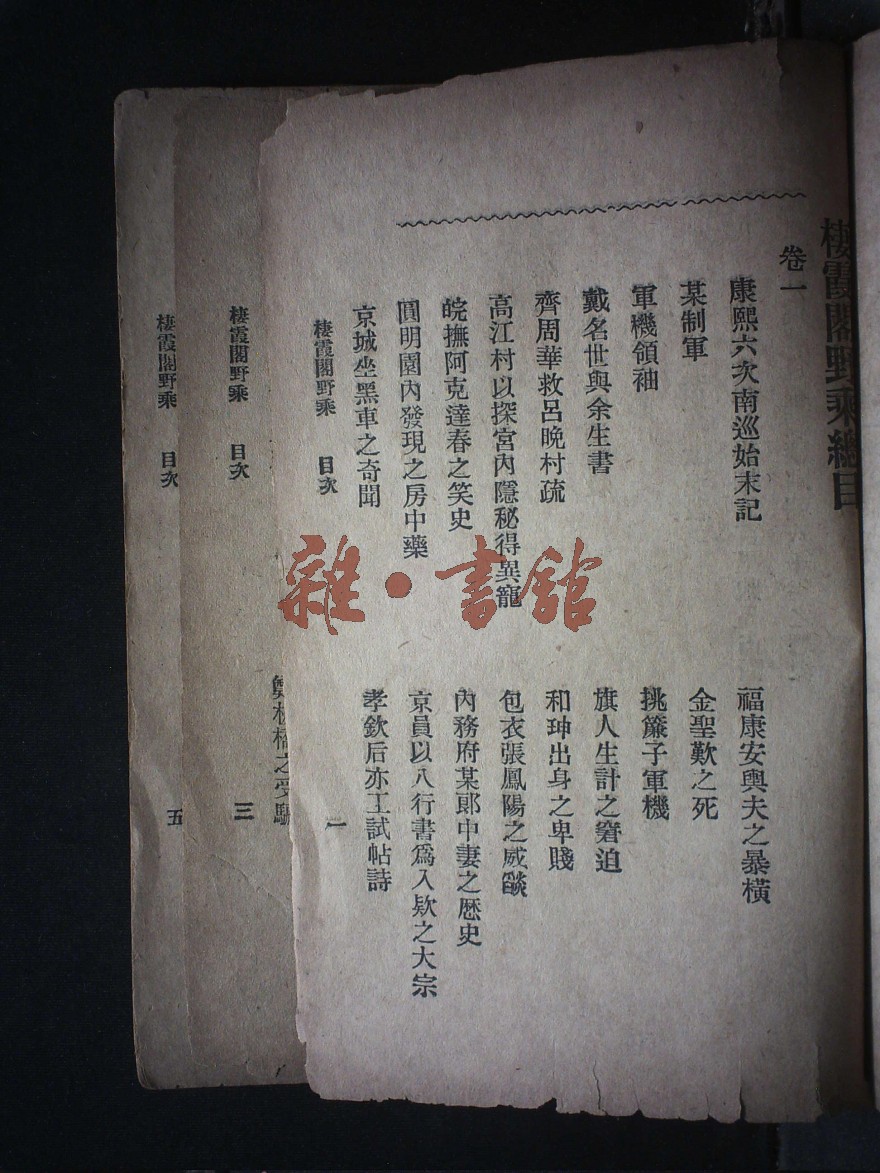 棲霞閣野乘總目
卷一
康熙六次南巡始末記
福康安輿夫之暴橫
某制軍
金聖歎之死
軍機領袖
挑簾子軍機
戴名世與余生書
旗人生計之窘迫
齊周華救呂晚村疏
和珅出身之卑賤
高江村以探宮內隱秘得異寵
包衣張鳳陽之威燄
皖撫阿克達春之笑史
內務府某郞中妻之歷史
圓明園內發現之房中藥
京員以八行書爲入欵之大宗
京城坐黑車之奇聞
孝欽后亦工試帖詩
棲霞閣野乘 目次 一
之受騙
棲霞閣野乘 目次 三
棲霞閣野乘 目次 五
雜·書館